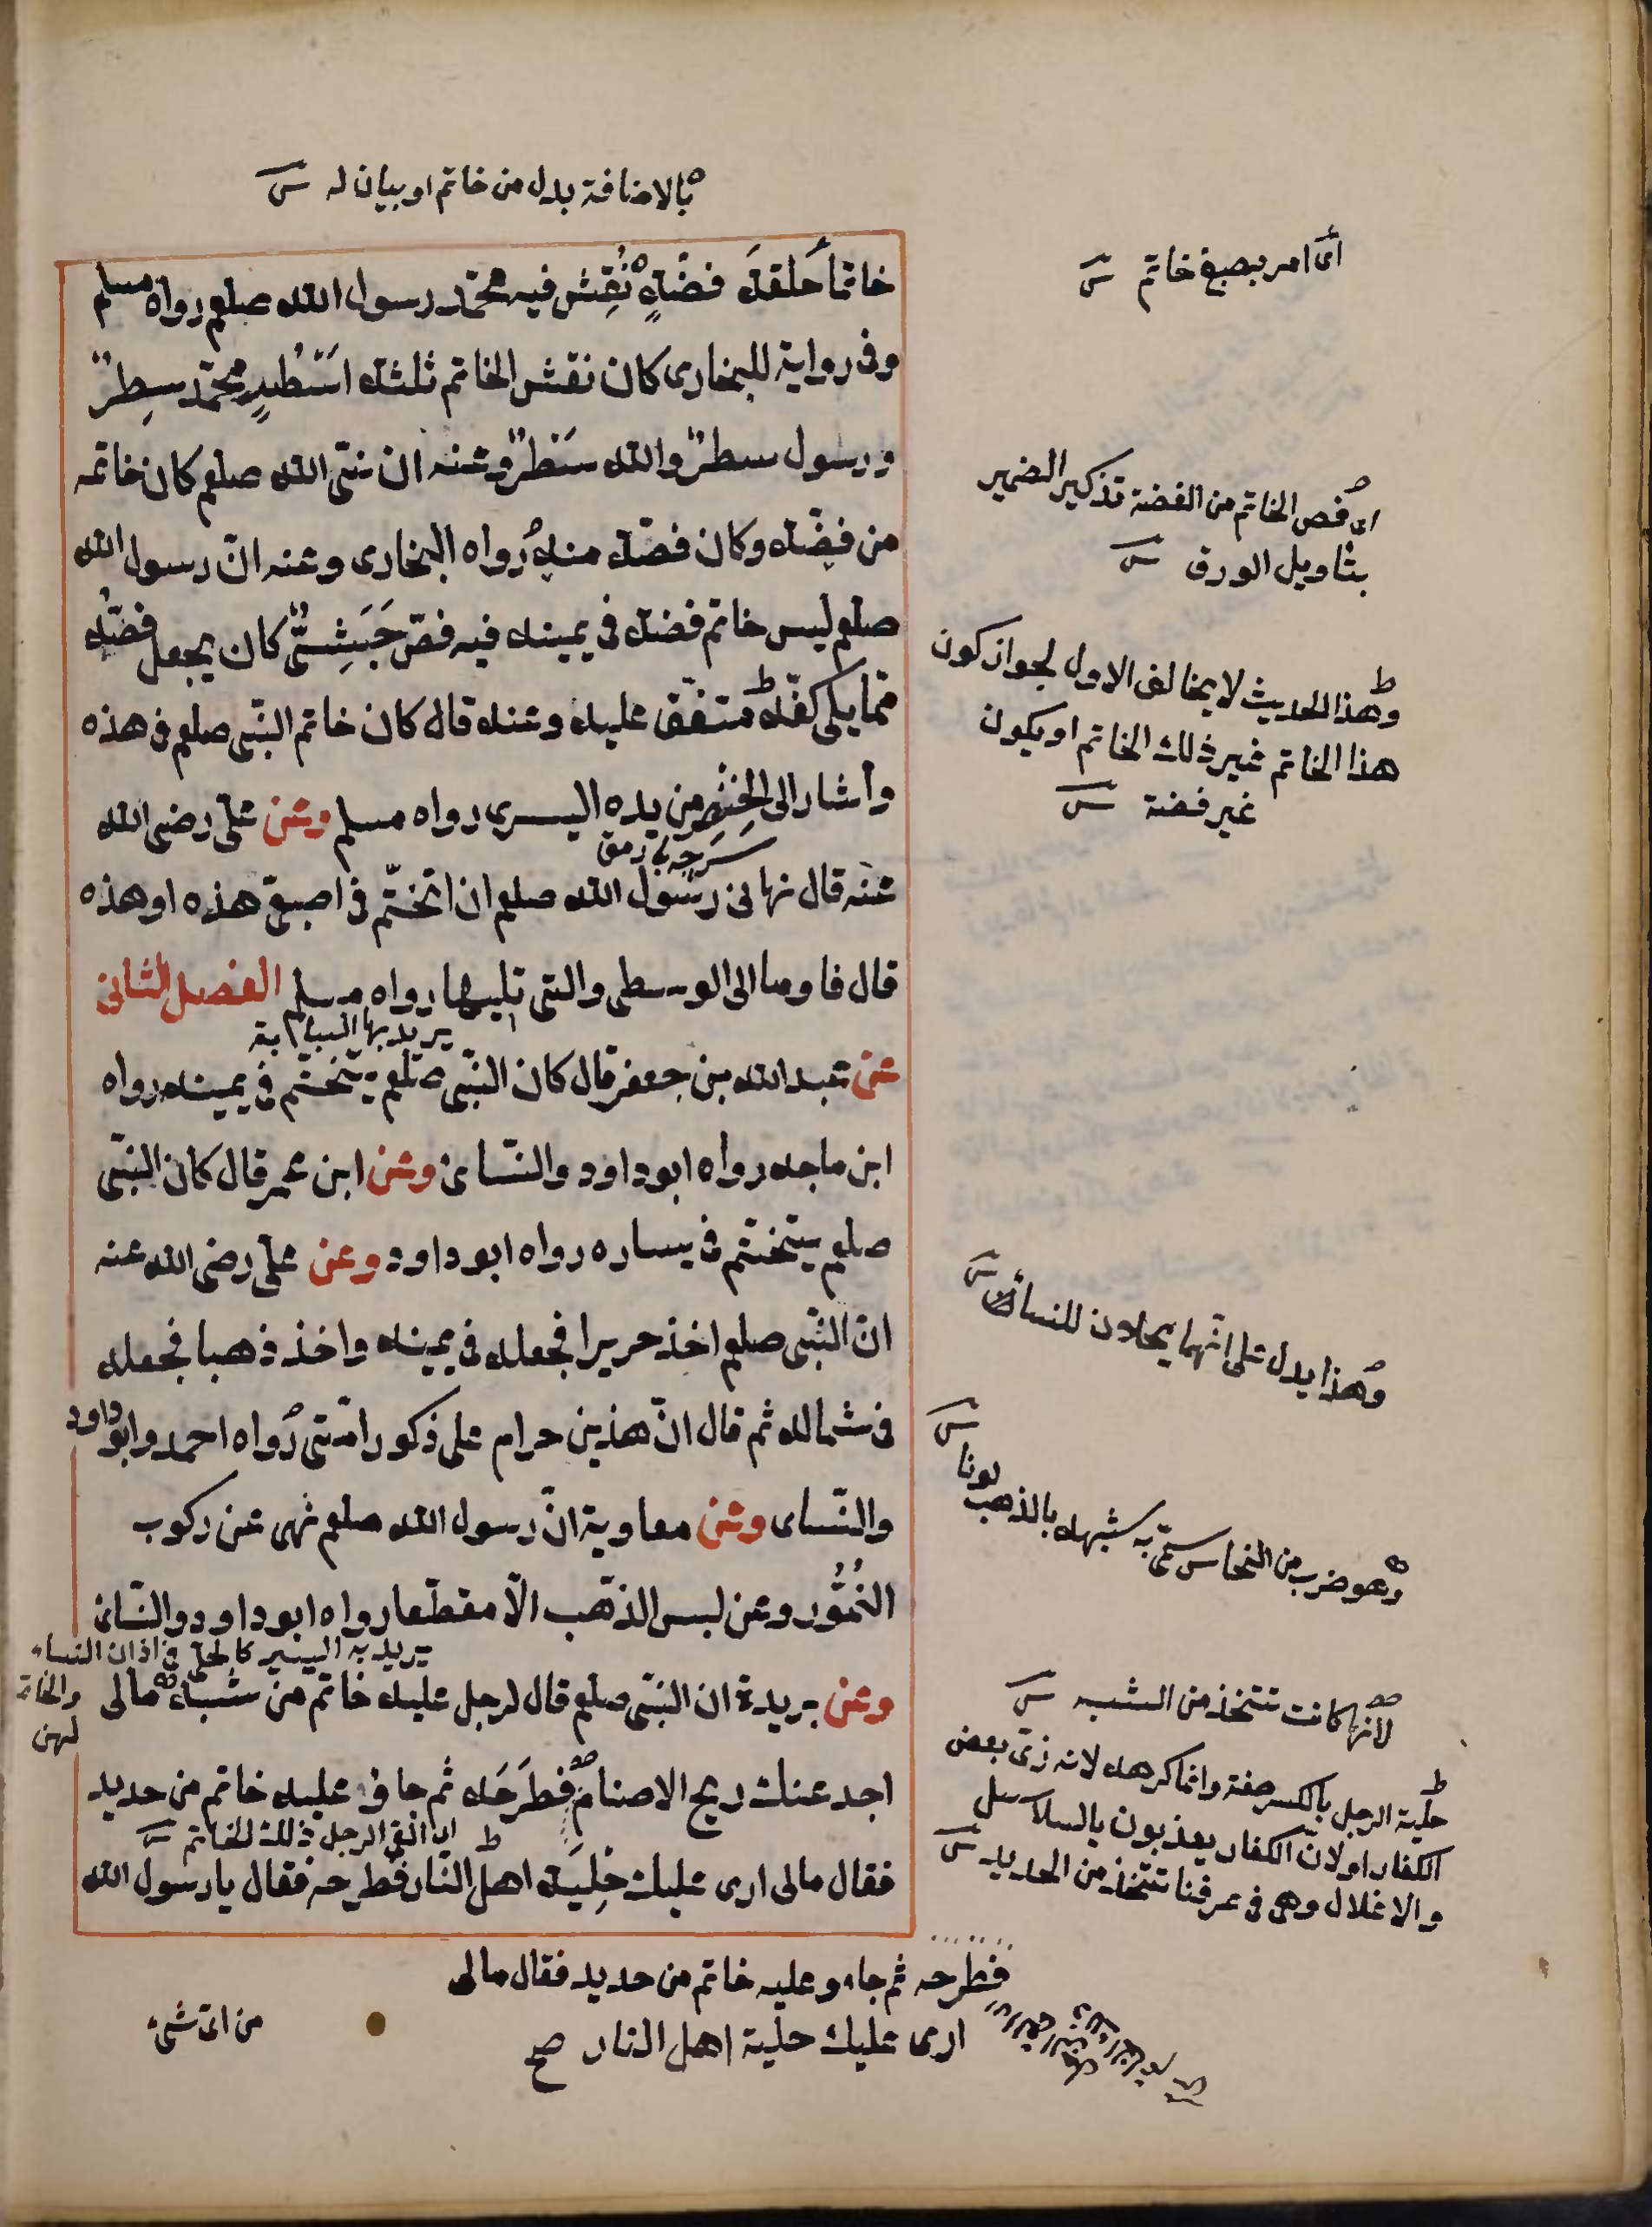 بالاضافة بدل من خاتم او بيان له
خاتما حلقة فضة نقش فيه محمد رسول الله صلعم رواه مسلم
وفى رواية للبخارى كان نقش الخاتم ثلثة اسطر محمد سطر
ورسول سطر والله سطر وعنه ان نبى الله صلعم كان خاتمه
من فضة وكان فصه منه رواه البخارى وعنه ان رسول الله
صلعم لبس خاتم فضة فى يمينه فيه فص حبشى كان يجعل فصه
مما يلى كفه متفق عليه وعنه قال كان خاتم النبى صلعم فى هذه
واشار الى الخنصر من يده اليسرى رواه مسلم وعن على رضى الله
عنه قال نهانى رسول الله صلعم ان اتختم فى اصبعى هذه او هذه
قال فاومأ الى الوسطى والتى تليها رواه مسلم الفصل الثانى
يريد بها السبابة
عن عبد الله بن جعفر قال كان النبى صلعم يتختم فى يمينه رواه
ابن ماجه رواه ابو داود والنسائى وعن ابن عمر قال كان النبى
صلعم يتختم فى يساره رواه ابو داود وعن على رضى الله عنه
ان النبى صلعم اخذ حريرا فجعله فى يمينه واخذ ذهبا فجعله
فى شماله ثم قال ان هذين حرام على ذكور امتى رواه احمد وابو داود
والنساى وعن معاوية ان رسول الله صلعم نهى عن ركوب
النمور وعن لبس الذهب الا مقطعا رواه ابو داود والنسائى
يريد به اليسير كالحلى فى اذان النساء
والخاتم
لهن
وعن بريدة ان النبى صلعم قال لرجل عليه خاتم من شبه مالى
اجد عنك ريح الاصنام فطرحه ثم جاؤ عليه خاتم من حديد
اى القى الرجل ذلك الخاتم
فقال مالى ارى عليك حلية اهل النار فطرحه فقال يا رسول الله
فطرحه ثم جاء وعليه خاتم من حديد فقال مالى
ارى عليك حلية اهل النار صح
من اى شىء
اى امر بصيغ خاتم
اى فص الخاتم من الفضة تذكير الضمير
بتاويل الورق
وهذا الحديث لا يخالف الاول لجواز كون
هذا الخاتم غير ذلك الخاتم او يكون
غير فضة
وهذا يدل على انهما يحلان للنساء
وهو ضرب من النحاس سمى به شبهه بالذهب لونا
لانها كانت تتخذ من الشبه
حلية الرجل بالكسر صفة وانما كرهه لانه زى بعض
الكفار او لان الكفار يعذبون بالسلاسل
والاغلال وهى فى عرفنا تتخذ من الحديد